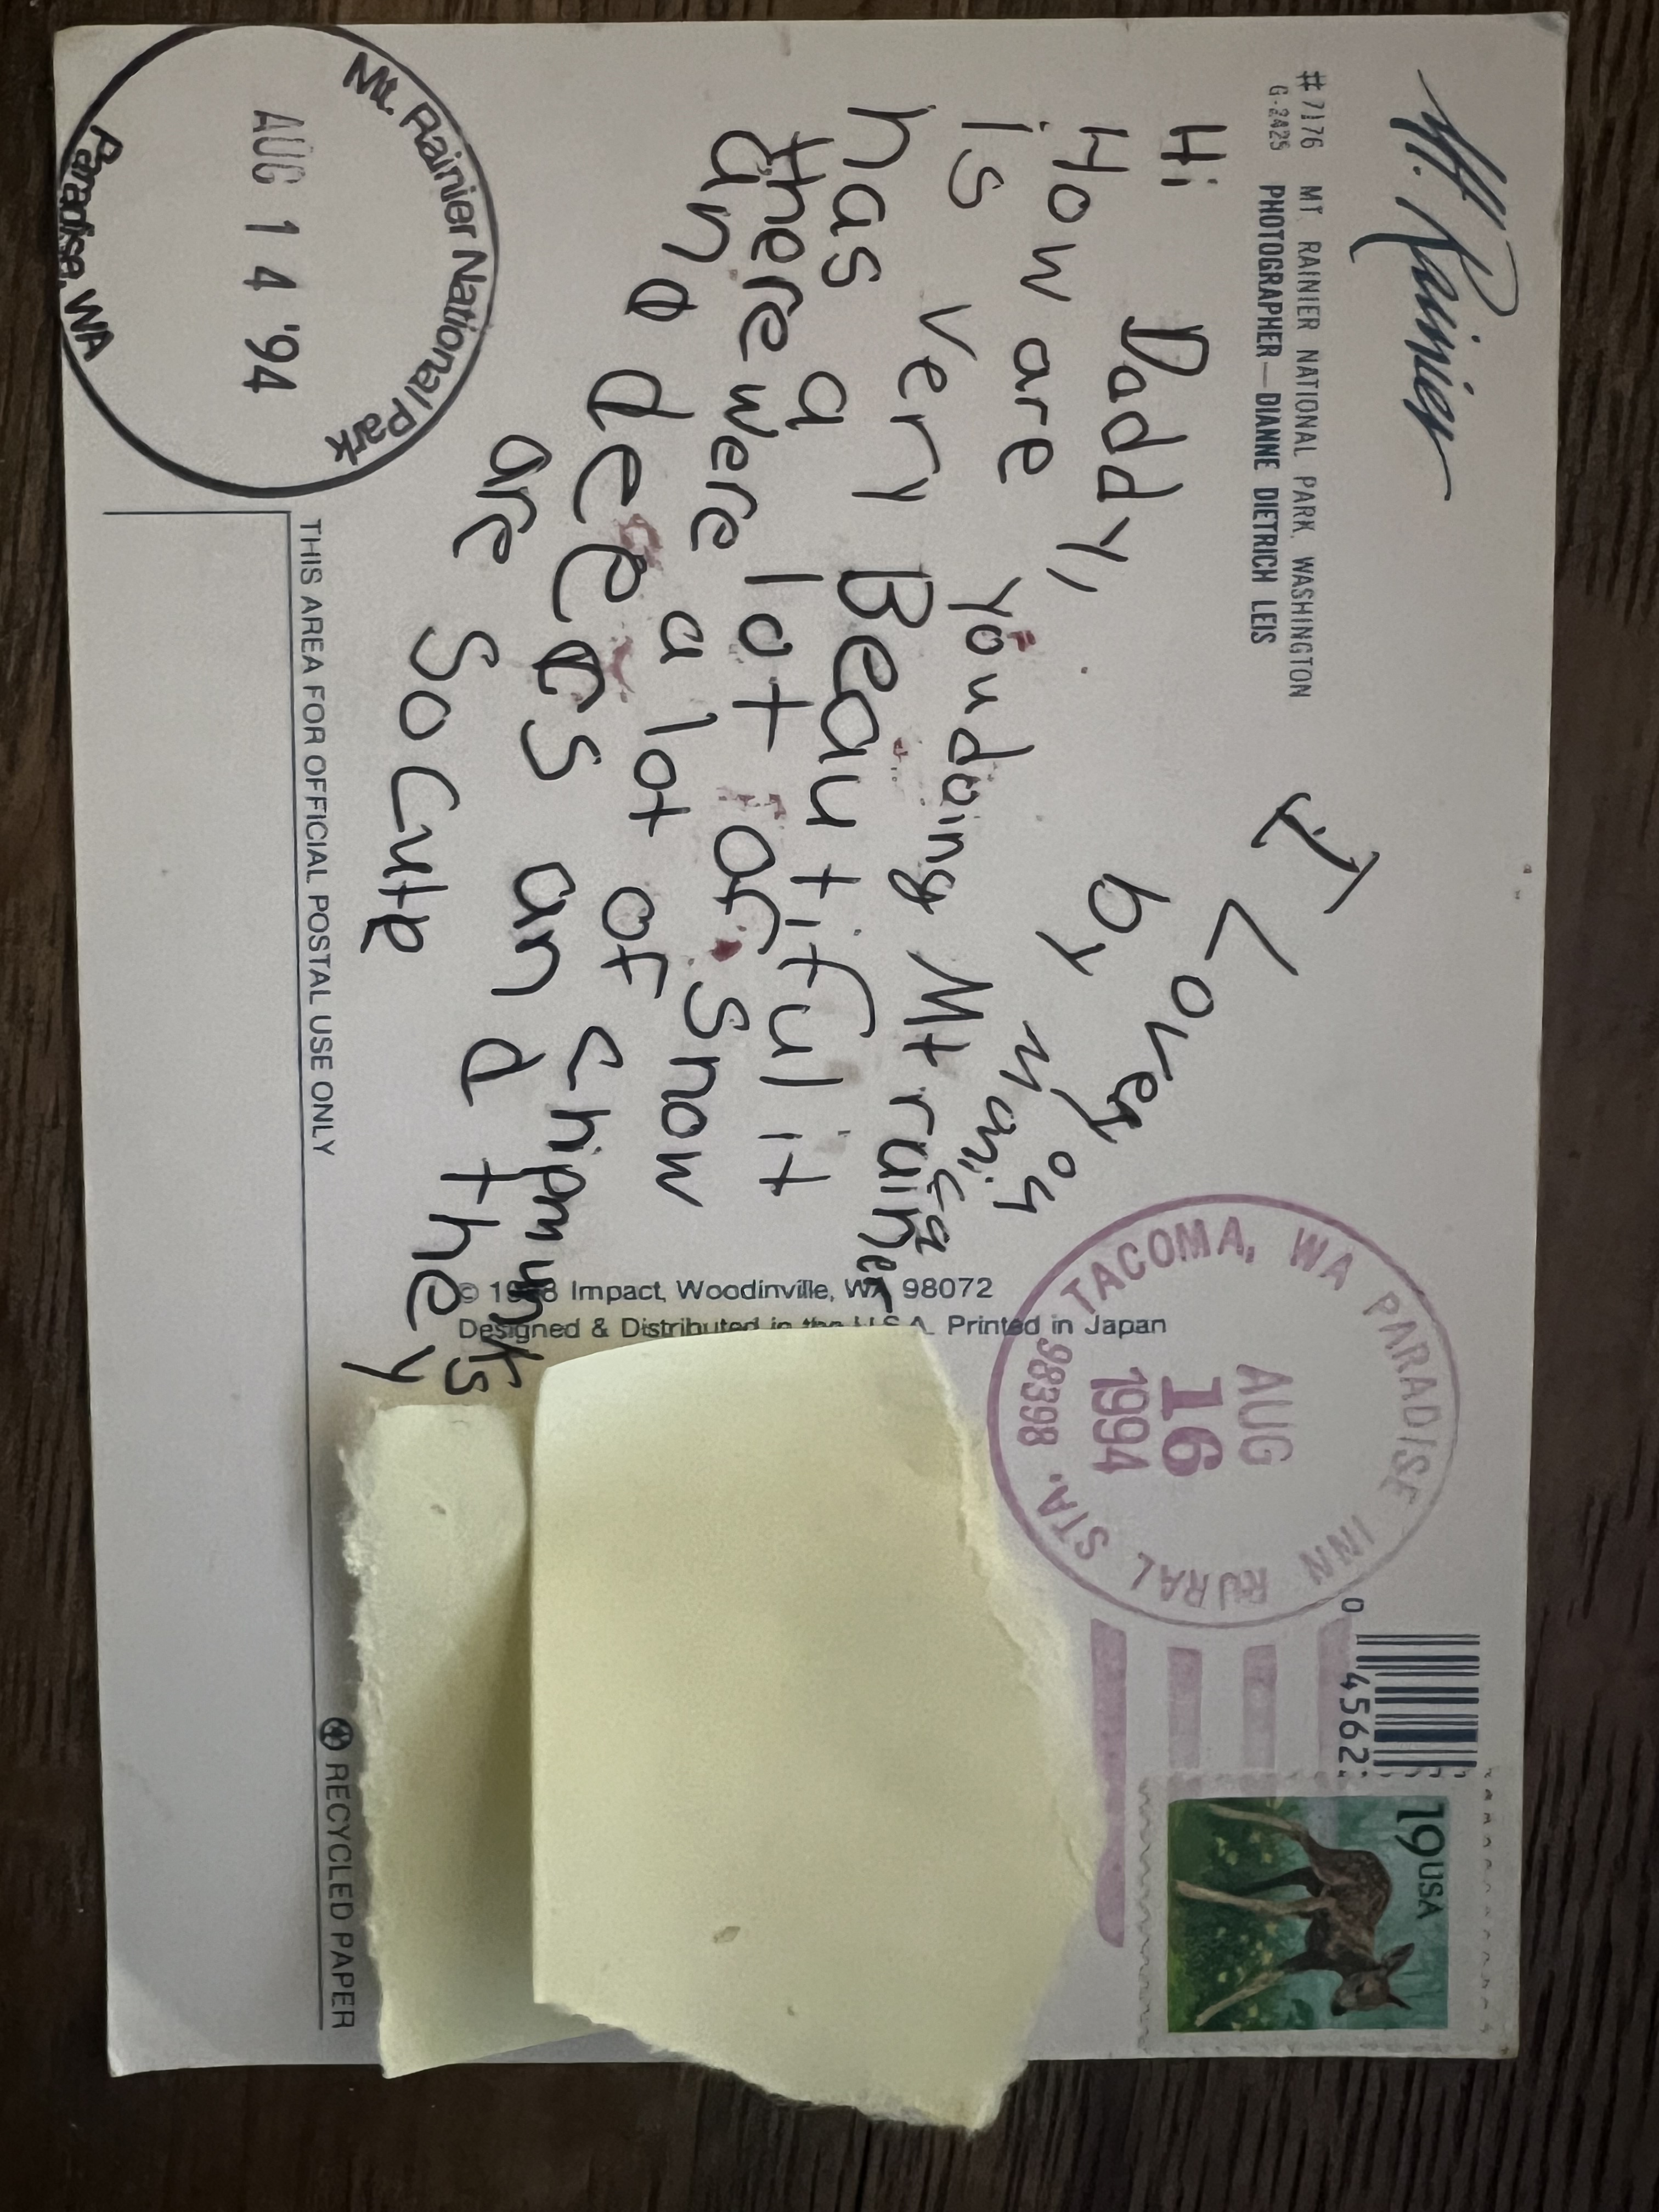 Mt. Rainier
#7176 MT. RAINIER NATIONAL PARK, WASHINGTON
G-2425 PHOTOGRAPHER—DIANNE DIETRICH LEIS
Hi Daddy,
How are you doing Mt rainer
is very Beautiful it
has a lot of snow
there were a lot of chipmunks
and deers and they
are so cute
I Love you
by
Mt. Rainier National Park
AUG 14 '94
Paradise, WA
THIS AREA FOR OFFICIAL POSTAL USE ONLY
Impact, Woodinville, WA 98072
Designed & Distributed in the U.S.A. Printed in Japan
TACOMA, WA PARADISE INN RURAL STA. 98398
AUG
16
1994
0 4562
19USA
RECYCLED PAPER